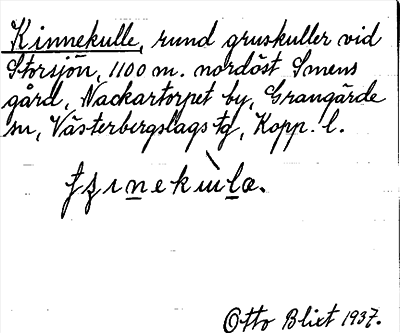 Kinnekulle, rund gruskuller vid
Storsjön, 1100 m. nordöst Smens
gård, Nackartorpet by, Grangärde
sn, Västerbergslags tg, Kopp. l.
Otto Blixt 1937.